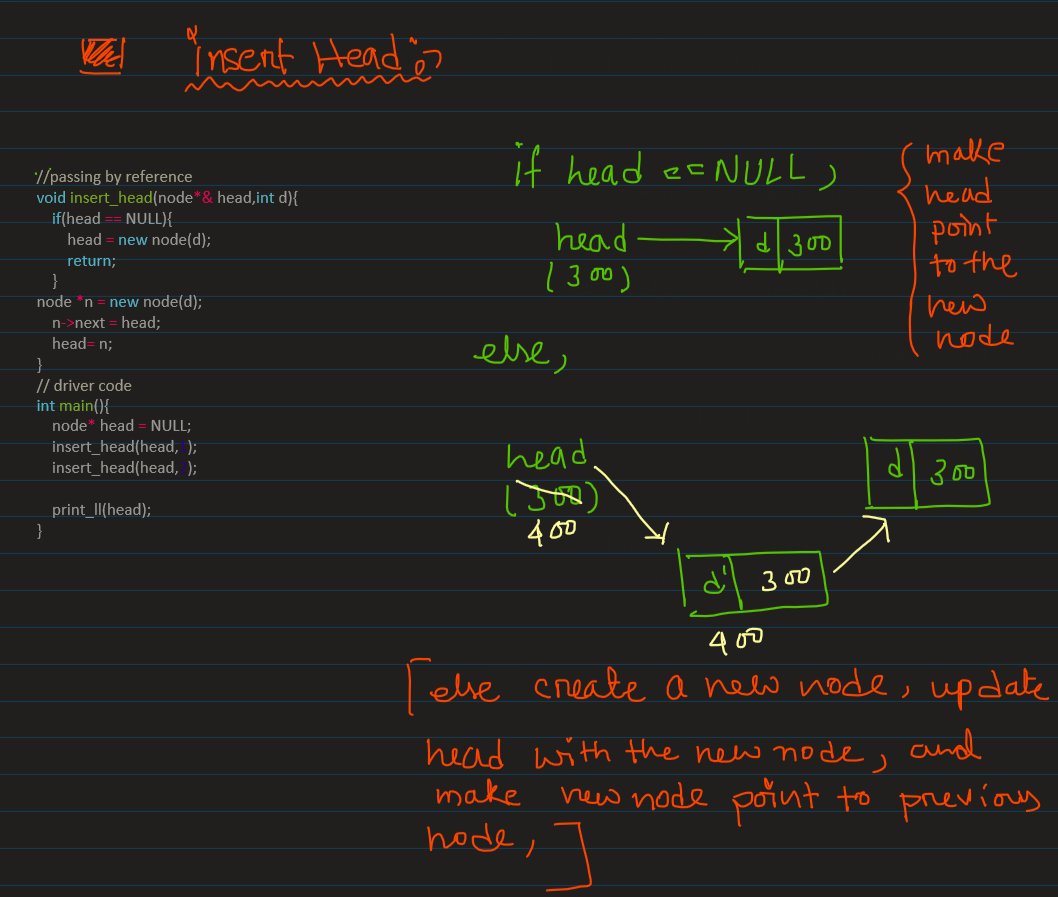 insert Head :→
//passing by reference
void insert_head(node*& head,int d){
if(head == NULL){
head = new node(d);
return;
}
node *n = new node(d);
n->next = head;
head= n;
}
// driver code
int main(){
node* head = NULL;
insert_head(head, );
insert_head(head, );
print_ll(head);
}
if head == NULL,
head
(300)
d 300
make
head
point
to the
new
node
else,
head
(300)
400
d' 300
400
d 300
[else create a new node, update
head with the new node, and
make new node point to previous
node,]